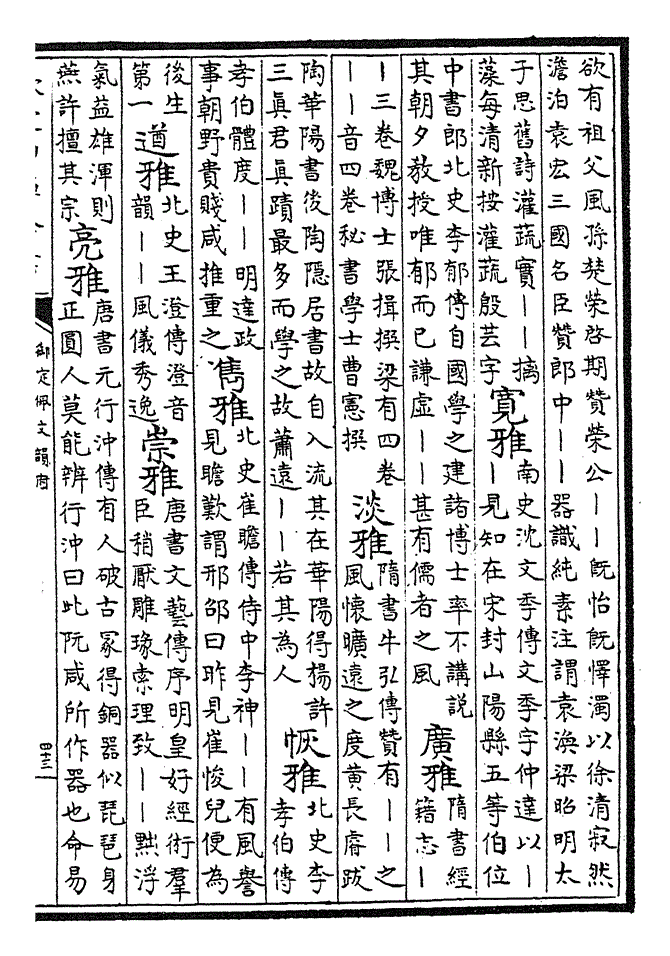 欲有祖父風孫楚榮啓期贊榮公——旣怡旣懌濁以徐清寂然
澹泊袁宏三國名臣贊郎中——器識純素注謂袁渙梁昭明太
于思舊詩灌蔬實——摛
藻每清新按灌蔬殷芸字
寬雅
南史沈文季傳文季字仲達以—
—見知在宋封山陽縣五等伯位
中書郎北史李郁傳自國學之建諸博士率不講說
其朝夕教授唯郁而已謙虛——甚有儒者之風
廣雅
隋書經
籍志—
—三卷魏博士張揖撰梁有四卷
——音四卷秘書學士曹憲撰
淡雅
隋書牛弘傳贊有——之
風懷曠遠之度黄長睿跋
陶華陽書後陶隱居書故自入流其在華陽得楊許
三眞君眞蹟最多而學之故蕭遠——若其為人
恢雅
北史李
孝伯傳
孝伯體度——明達政
事朝野貴賤咸推重之
雋雅
北史崔瞻傳侍中李神——有風譽
見瞻歎謂邢邵曰昨見崔㥄兒便為
後生
第一
遒雅
北史王澄傳澄音
韻——風儀秀逸
崇雅
唐書文藝傳序明皇好經術羣
臣稍厭雕瑑索理致——黜浮
氣益雄渾則
燕許擅其宗
亮雅
唐書元行沖傳有人破古冢得銅器似琵琶身
正圓人莫能辨行沖曰此阮咸所作器也命易
御定佩文韻府
四十三